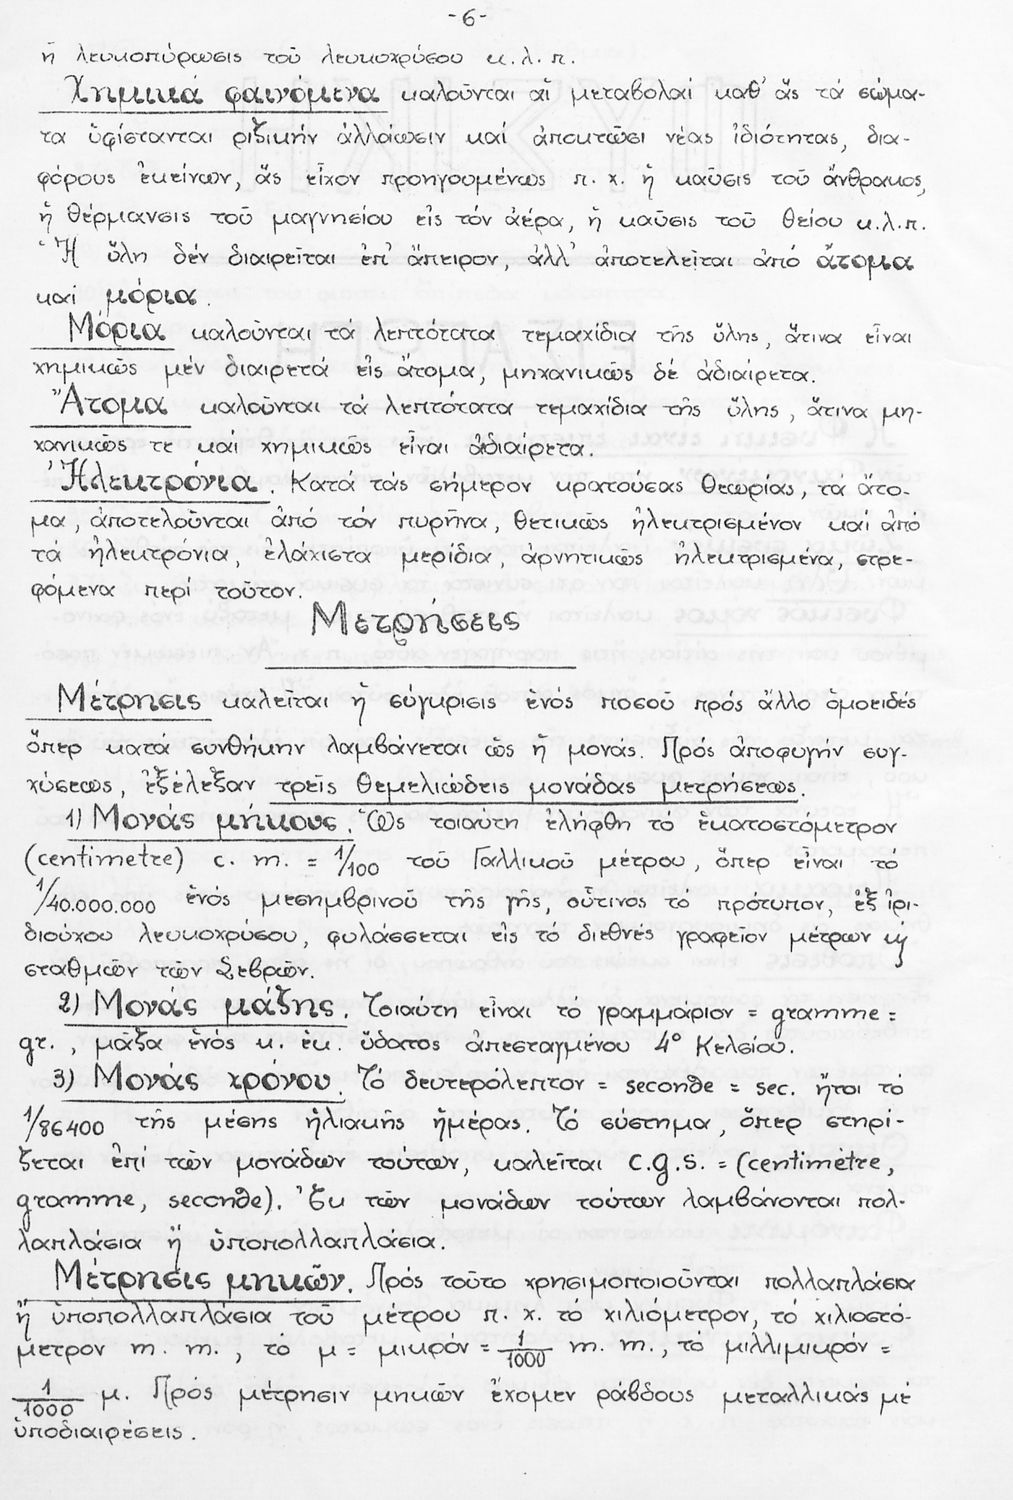 -6-
ἤ λευκοπύρωσις τοῦ λευκοχρύσου κ.λ.π.
Χημικά φαινόμενα καλοῦνται αἵ μεταβολαί καθ' ἅς τά σώμα-
τα ὑφίστανται ριζικήν ἀλλοίωσιν καί ἀποκτῶσι νέας ἰδιότητας, δια-
φόρους ἐκείνων, ἅς εἶχον προηγουμένως π.χ. ἡ καῦσις τοῦ ἄνθρακος,
ἡ θέρμανσις τοῦ μαγνησίου εἰς τόν ἀέρα, ἡ καῦσις τοῦ θείου κ.λ.π.
Ἡ ὕλη δέν διαιρεῖται ἐπ' ἄπειρον, ἀλλ' ἀποτελεῖται ἀπό ἄτομα
καί μόρια.
Μόρια καλοῦνται τά λεπτότατα τεμαχίδια τῆς ὕλης, ἅτινα εἶναι
χημικῶς μέν διαιρετά εἰς ἄτομα, μηχανικῶς δέ ἀδιαίρετα.
Ἄτομα καλοῦνται τά λεπτότατα τεμαχίδια τῆς ὕλης, ἅτινα μη-
χανικῶς τε καί χημικῶς εἶναι ἀδιαίρετα.
Ἠλεκτρόνια. Κατά τάς σήμερον κρατούσας θεωρίας, τά ἄτο-
μα, ἀποτελοῦνται ἀπό τόν πυρῆνα, θετικῶς ἠλεκτρισμένον καί ἀπό
τά ἠλεκτρόνια, ἐλάχιστα μερίδια, ἀρνητικῶς ἠλεκτρισμένα, στρε-
φόμενα περί τοῦτον.
Μετρήσεις
Μέτρησις καλεῖται ἡ σύγκρισις ἑνός ποσοῦ πρός ἄλλο ὁμοειδές
ὅπερ κατά συνθήκην λαμβάνεται ὡς ἡ μονάς. Πρός ἀποφυγήν συγ-
χύσεως, ἐξέλεξαν τρεῖς θεμελιώδεις μονάδας μετρήσεως.
1) Μονάς μήκους. Ὡς τοιαύτη ἐλήφθη τό ἑκατοστόμετρον
(centimetre) c. m. = 1/100 τοῦ Γαλλικοῦ μέτρου, ὅπερ εἶναι τό
1/40.000.000 ἑνός μεσημβρινοῦ τῆς γῆς, οὗτινος τό πρότυπον, ἐξ ἰρι-
διούχου λευκοχρύσου, φυλάσσεται εἰς τό διεθνές γραφεῖον μέτρων ϗ
σταθμῶν τῶν Σεβρῶν.
2) Μονάς μάζης. Τοιαύτη εἶναι τό γραμμάριον = gramme =
gr., μᾶζα ἑνός κ. ἐκ. ὕδατος ἀπεσταγμένου 4° Κελσίου.
3) Μονάς χρόνου. Τό δευτερόλεπτον = seconde = sec. ἤτοι τό
1/86400 τῆς μέσης ἡλιακῆς ἡμέρας. Τό σύστημα, ὅπερ στηρί-
ζεται ἐπί τῶν μονάδων τούτων, καλεῖται c.g.s. = (centimètre,
gramme, seconde). Ἐκ τῶν μονάδων τούτων λαμβάνονται πολ-
λαπλάσια ἤ ὑποπολλαπλάσια.
Μέτρησις μηκῶν. Πρός τοῦτο χρησιμοποιοῦνται πολλαπλάσια
ἤ ὑποπολλαπλάσια τοῦ μέτρου π.χ. τό χιλιόμετρον, τό χιλιοστό-
μετρον m. m., τό μ = μικρόν = 1/1000 m. m., τό μιλλιμικρόν =
1/1000 μ. Πρός μέτρησιν μηκῶν ἔχομεν ράβδους μεταλλικάς μέ
ὑποδιαιρέσεις.